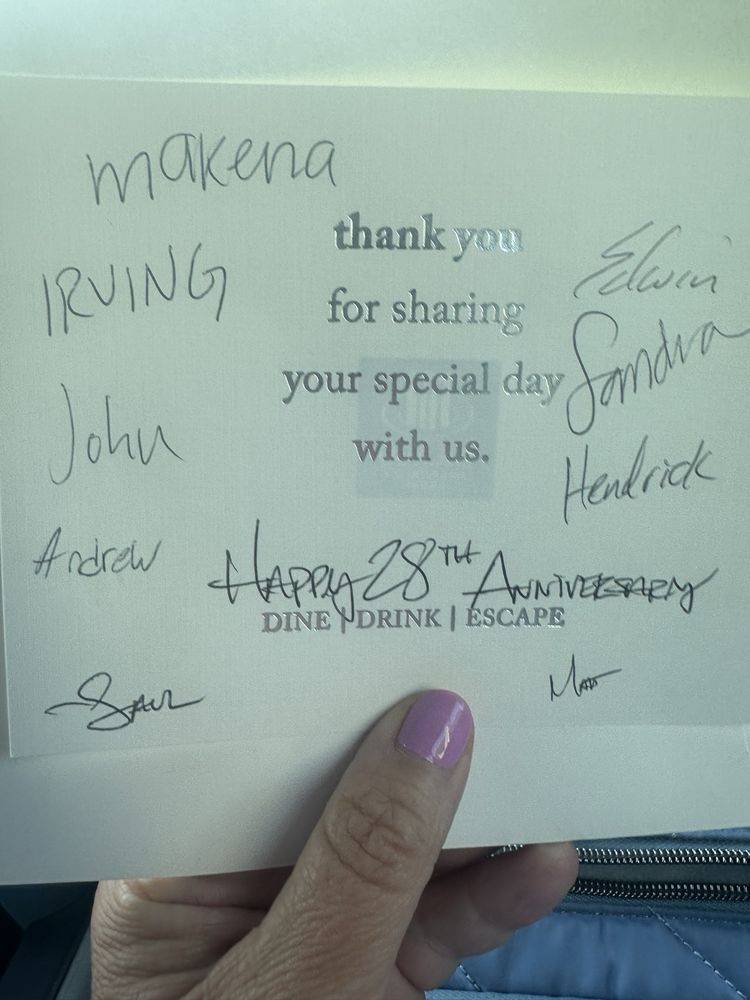 makena
thank you
IRVING
Edwin
for sharing
Sandra
your special day
John
with us.
Hendrick
Andrew
HAPPY 28TH ANNIVERSARY
DINE | DRINK | ESCAPE
SAUL
Mat